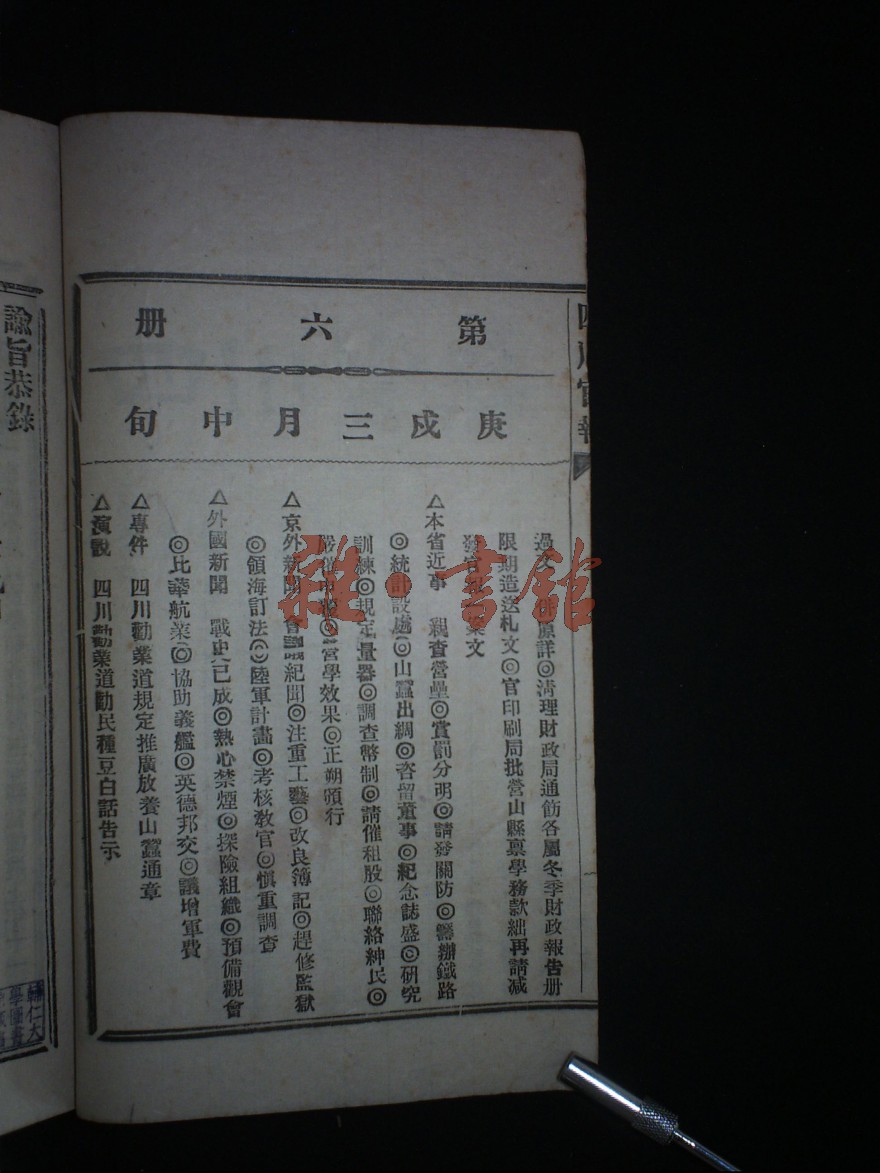 四川官報
第六册
庚戌三月中旬
詳◎淸理財政局通飭各屬冬季財政報告册
限期造送札文◎官印刷局批營山縣禀學務款絀再請减
發官報
文
△本省近事 親查營壘◎賞罰分明◎請發關防◎籌辦鐵路
◎統計設處◎山蠶出綢◎咨留董事◎紀念誌盛◎研究
訓練◎規定量器◎調查幣制◎請催租股◎聯絡紳民◎
營學效果◎正朔頒行
△京外新聞 會議紀聞◎注重工藝◎改良簿記◎趕修監獄
◎領海訂法◎陸軍計畫◎考核敎官◎愼重調查
△外國新聞 戰史已成◎熱心禁煙◎探險組織◎預備觀會
◎比華航業◎協助義艦◎英德邦交◎議增軍費
△專件 四川勸業道規定推廣放養山蠶通章
△演說 四川勸業道勸民種豆白話告示
諭旨恭錄
輔仁大
學圖書
雜·書館